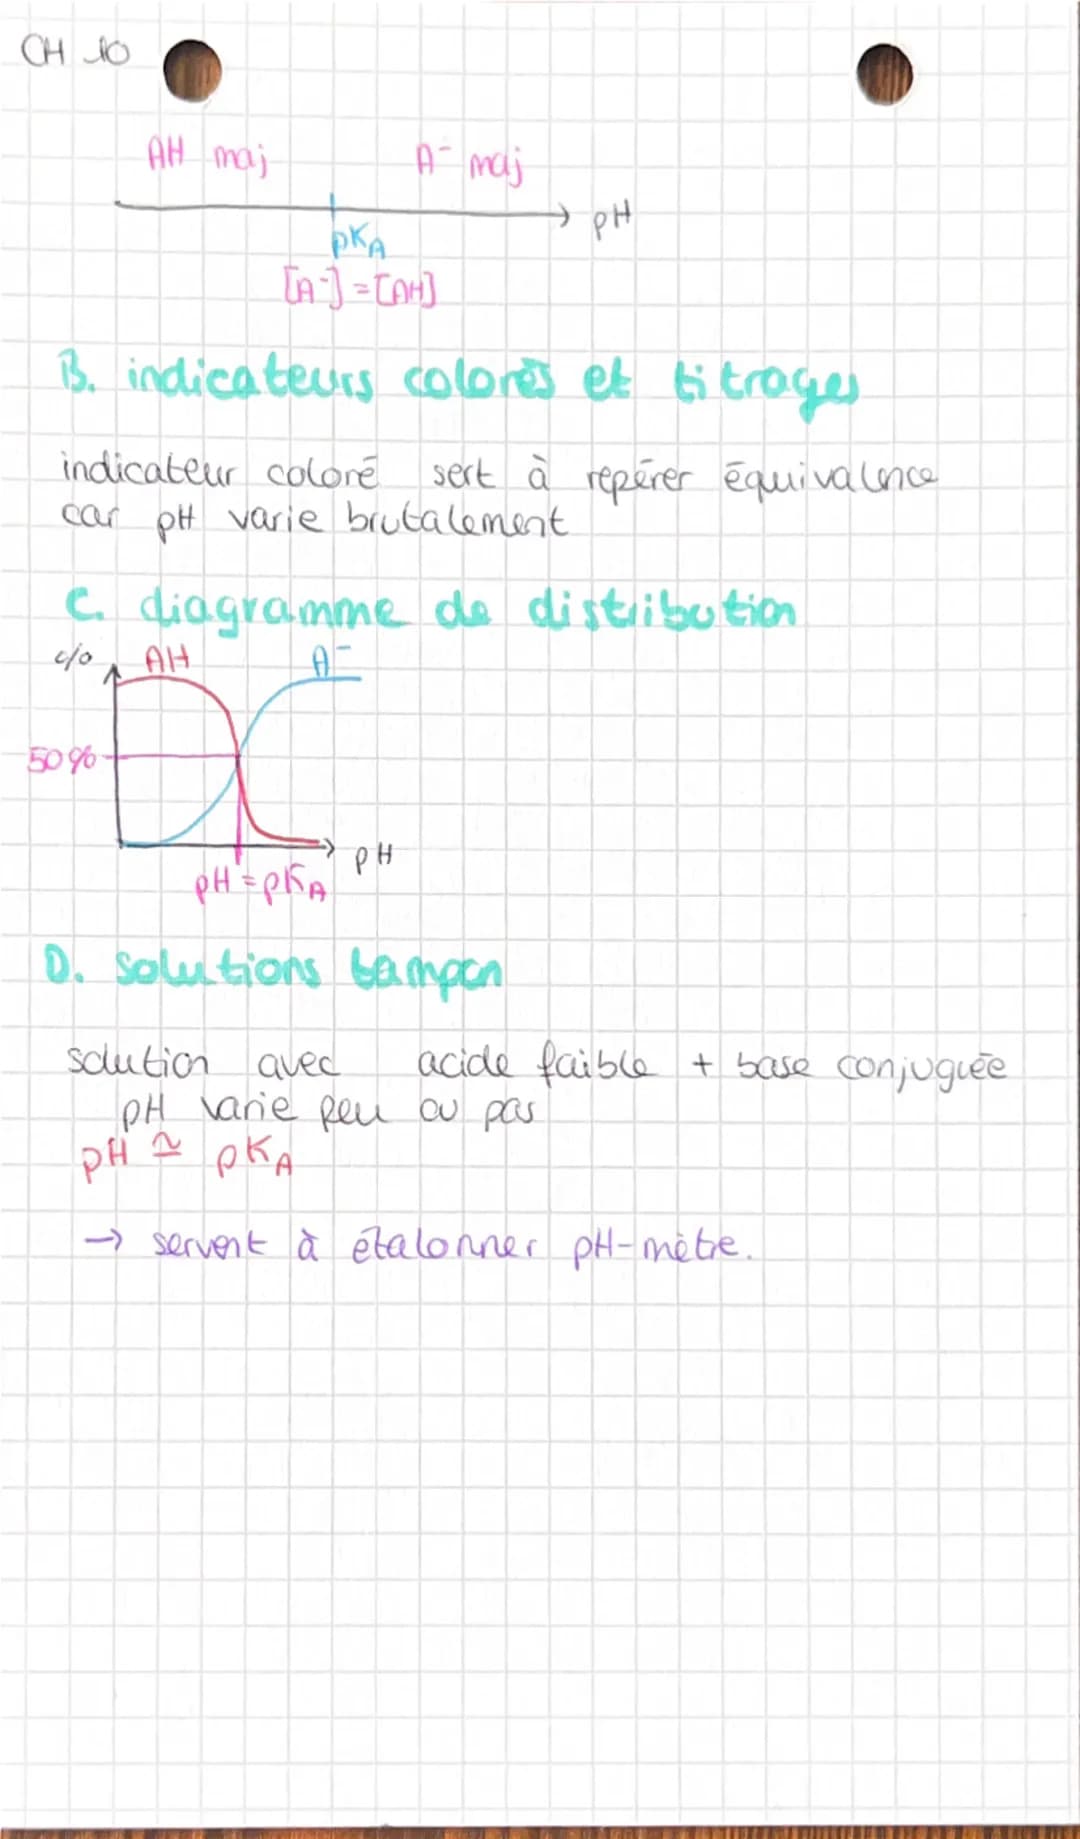 CH 10
AH maj A⁻ maj
pH
pKA
[A⁻] = [AH]
B. indicateurs colorés et titrages
indicateur coloré sert à repérer équivalence
car pH varie brutalement
C. diagramme de distribution
% AH A⁻
50%
pH
pH = pKA
D. solutions tampon
solution avec acide faible + base conjuguée
pH varie peu ou pas
pH ≃ pKA
→ servent à étalonner pH-mètre.